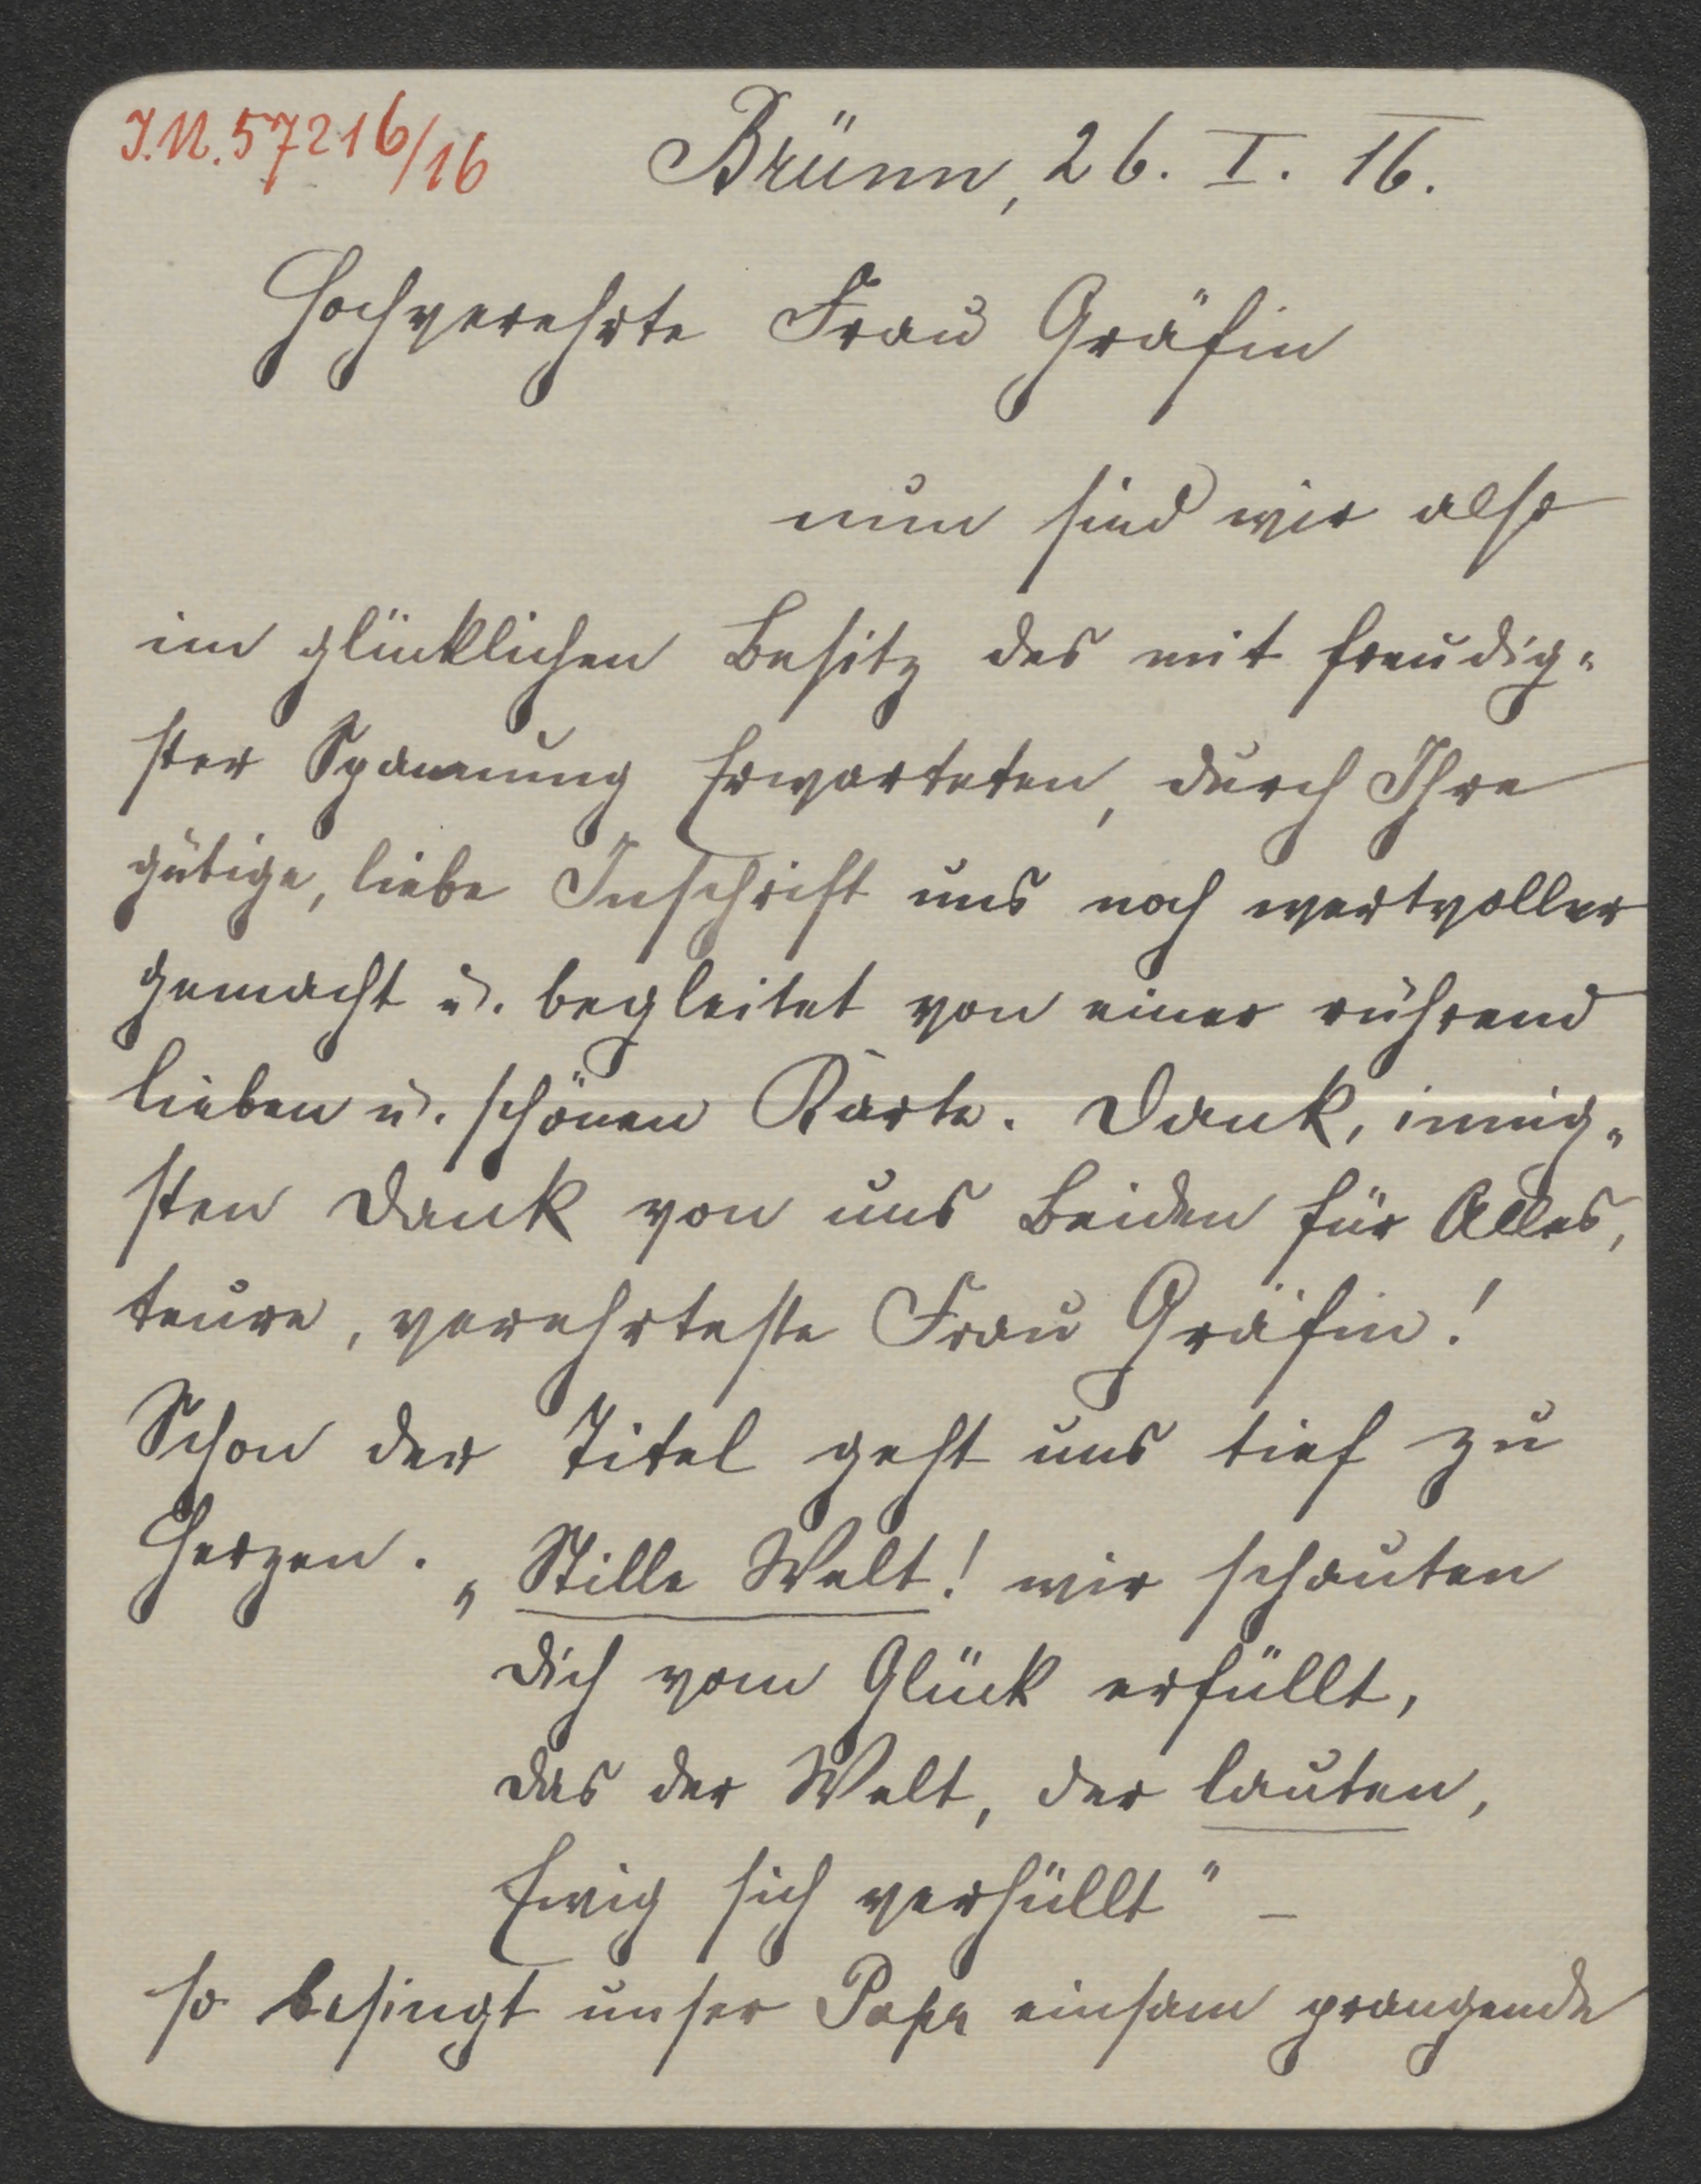 J.N. 57216/16
Brünn, 26. I. 16.
Hochverehrte Frau Gräfin
nun sind wir also
im glücklichen Besitz des mit freudig-
ster Spannung Erwarteten, durch Ihre
gütige, liebe Inschrift uns noch wertvoller
gemacht u. begleitet von einer rührend
lieben u. schönen Karte. Dank, innig-
sten Dank von uns Beiden für Alles,
teure, verehrteste Frau Gräfin!
Schon der Titel geht uns tief zu
Herzen. „Stille Welt! wir schauten
dich vom Glück erfüllt,
das der Welt, der lauten,
Ewig sich verhüllt" –
so besingt unser Papa einsam prangende